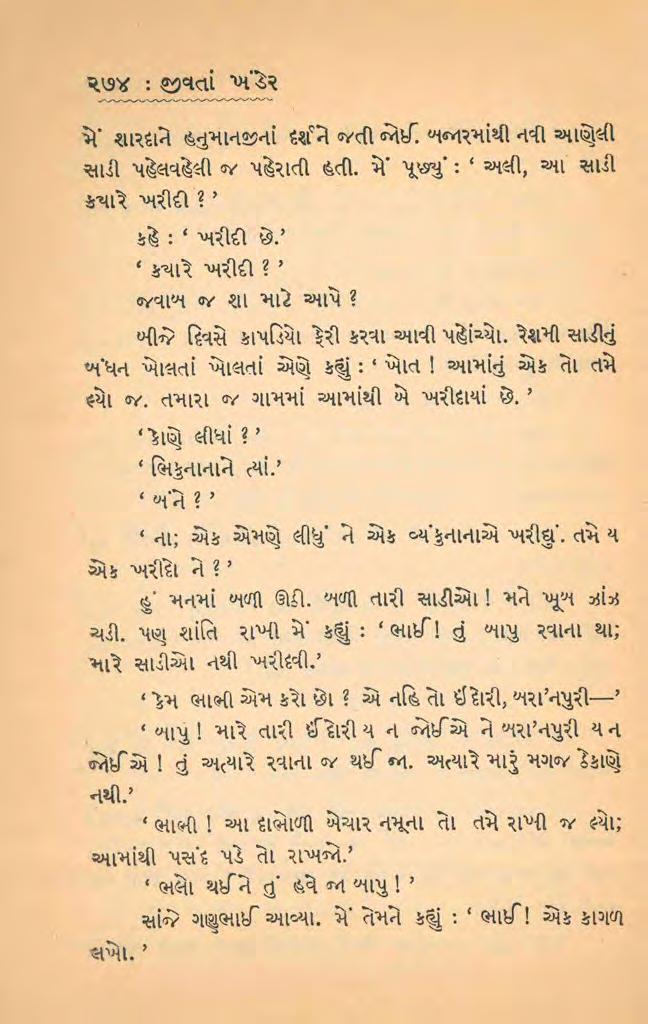 ૨૭૪ : જીવતાં ખંડેર
મેં શારદાને હનુમાનજીનાં દર્શને જતી જોઈ. બજારમાંથી નવી આણેલી
સાડી પહેલવહેલી જ પહેરાતી હતી. મેં પૂછ્યું : ‘ અલી, આ સાડી
ક્યારે ખરીદી ? ’
કહે : ‘ ખરીદી છે.’
‘ ક્યારે ખરીદી ? ’
જવાબ જ શા માટે આપે ?
બીજે દિવસે કાપડિયો ફેરી કરવા આવી પહોંચ્યો. રેશમી સાડીનું
બંધન ખોલતાં ખોલતાં એણે કહ્યું : ‘ ખોત ! આમાંનું એક તો તમે
લ્યો જ. તમારા જ ગામમાં આમાંથી બે ખરીદાયાં છે. ’
‘ કોણે લીધાં ? ’
‘ ભિકુનાનાને ત્યાં.’
‘ બંને ? ’
‘ ના; એક એમણે લીધું ને એક વ્યંકુનાનાએ ખરીદ્યું. તમે ય
એક ખરીદો ને ? ’
હું મનમાં બળી ઊઠી. બળી તારી સાડીઓ ! મને ખૂબ ઝાંઝ
ચડી. પણ શાંતિ રાખી મેં કહ્યું : ‘ ભાઈ ! તું બાપુ રવાના થા;
મારે સાડીઓ નથી ખરીદવી.’
‘ કેમ ભાભી એમ કરો છો ? એ નહિ તો ઈંદોરી, બરા’નપુરી—’
‘ બાપુ ! મારે તારી ઈંદોરી ય ન જોઈએ ને બરા’નપુરી ય ન
જોઈએ ! તું અત્યારે રવાના જ થઈ જા. અત્યારે મારું મગજ ઠેકાણે
નથી.’
‘ ભાભી ! આ દાભોળી બેચાર નમૂના તો તમે રાખી જ લ્યો;
આમાંથી પસંદ પડે તો રાખજો.’
‘ ભલો થઈને તું હવે જા બાપુ ! ’
સાંજે ગણુભાઈ આવ્યા. મેં તેમને કહ્યું : ‘ ભાઈ! એક કાગળ
લખો. ’